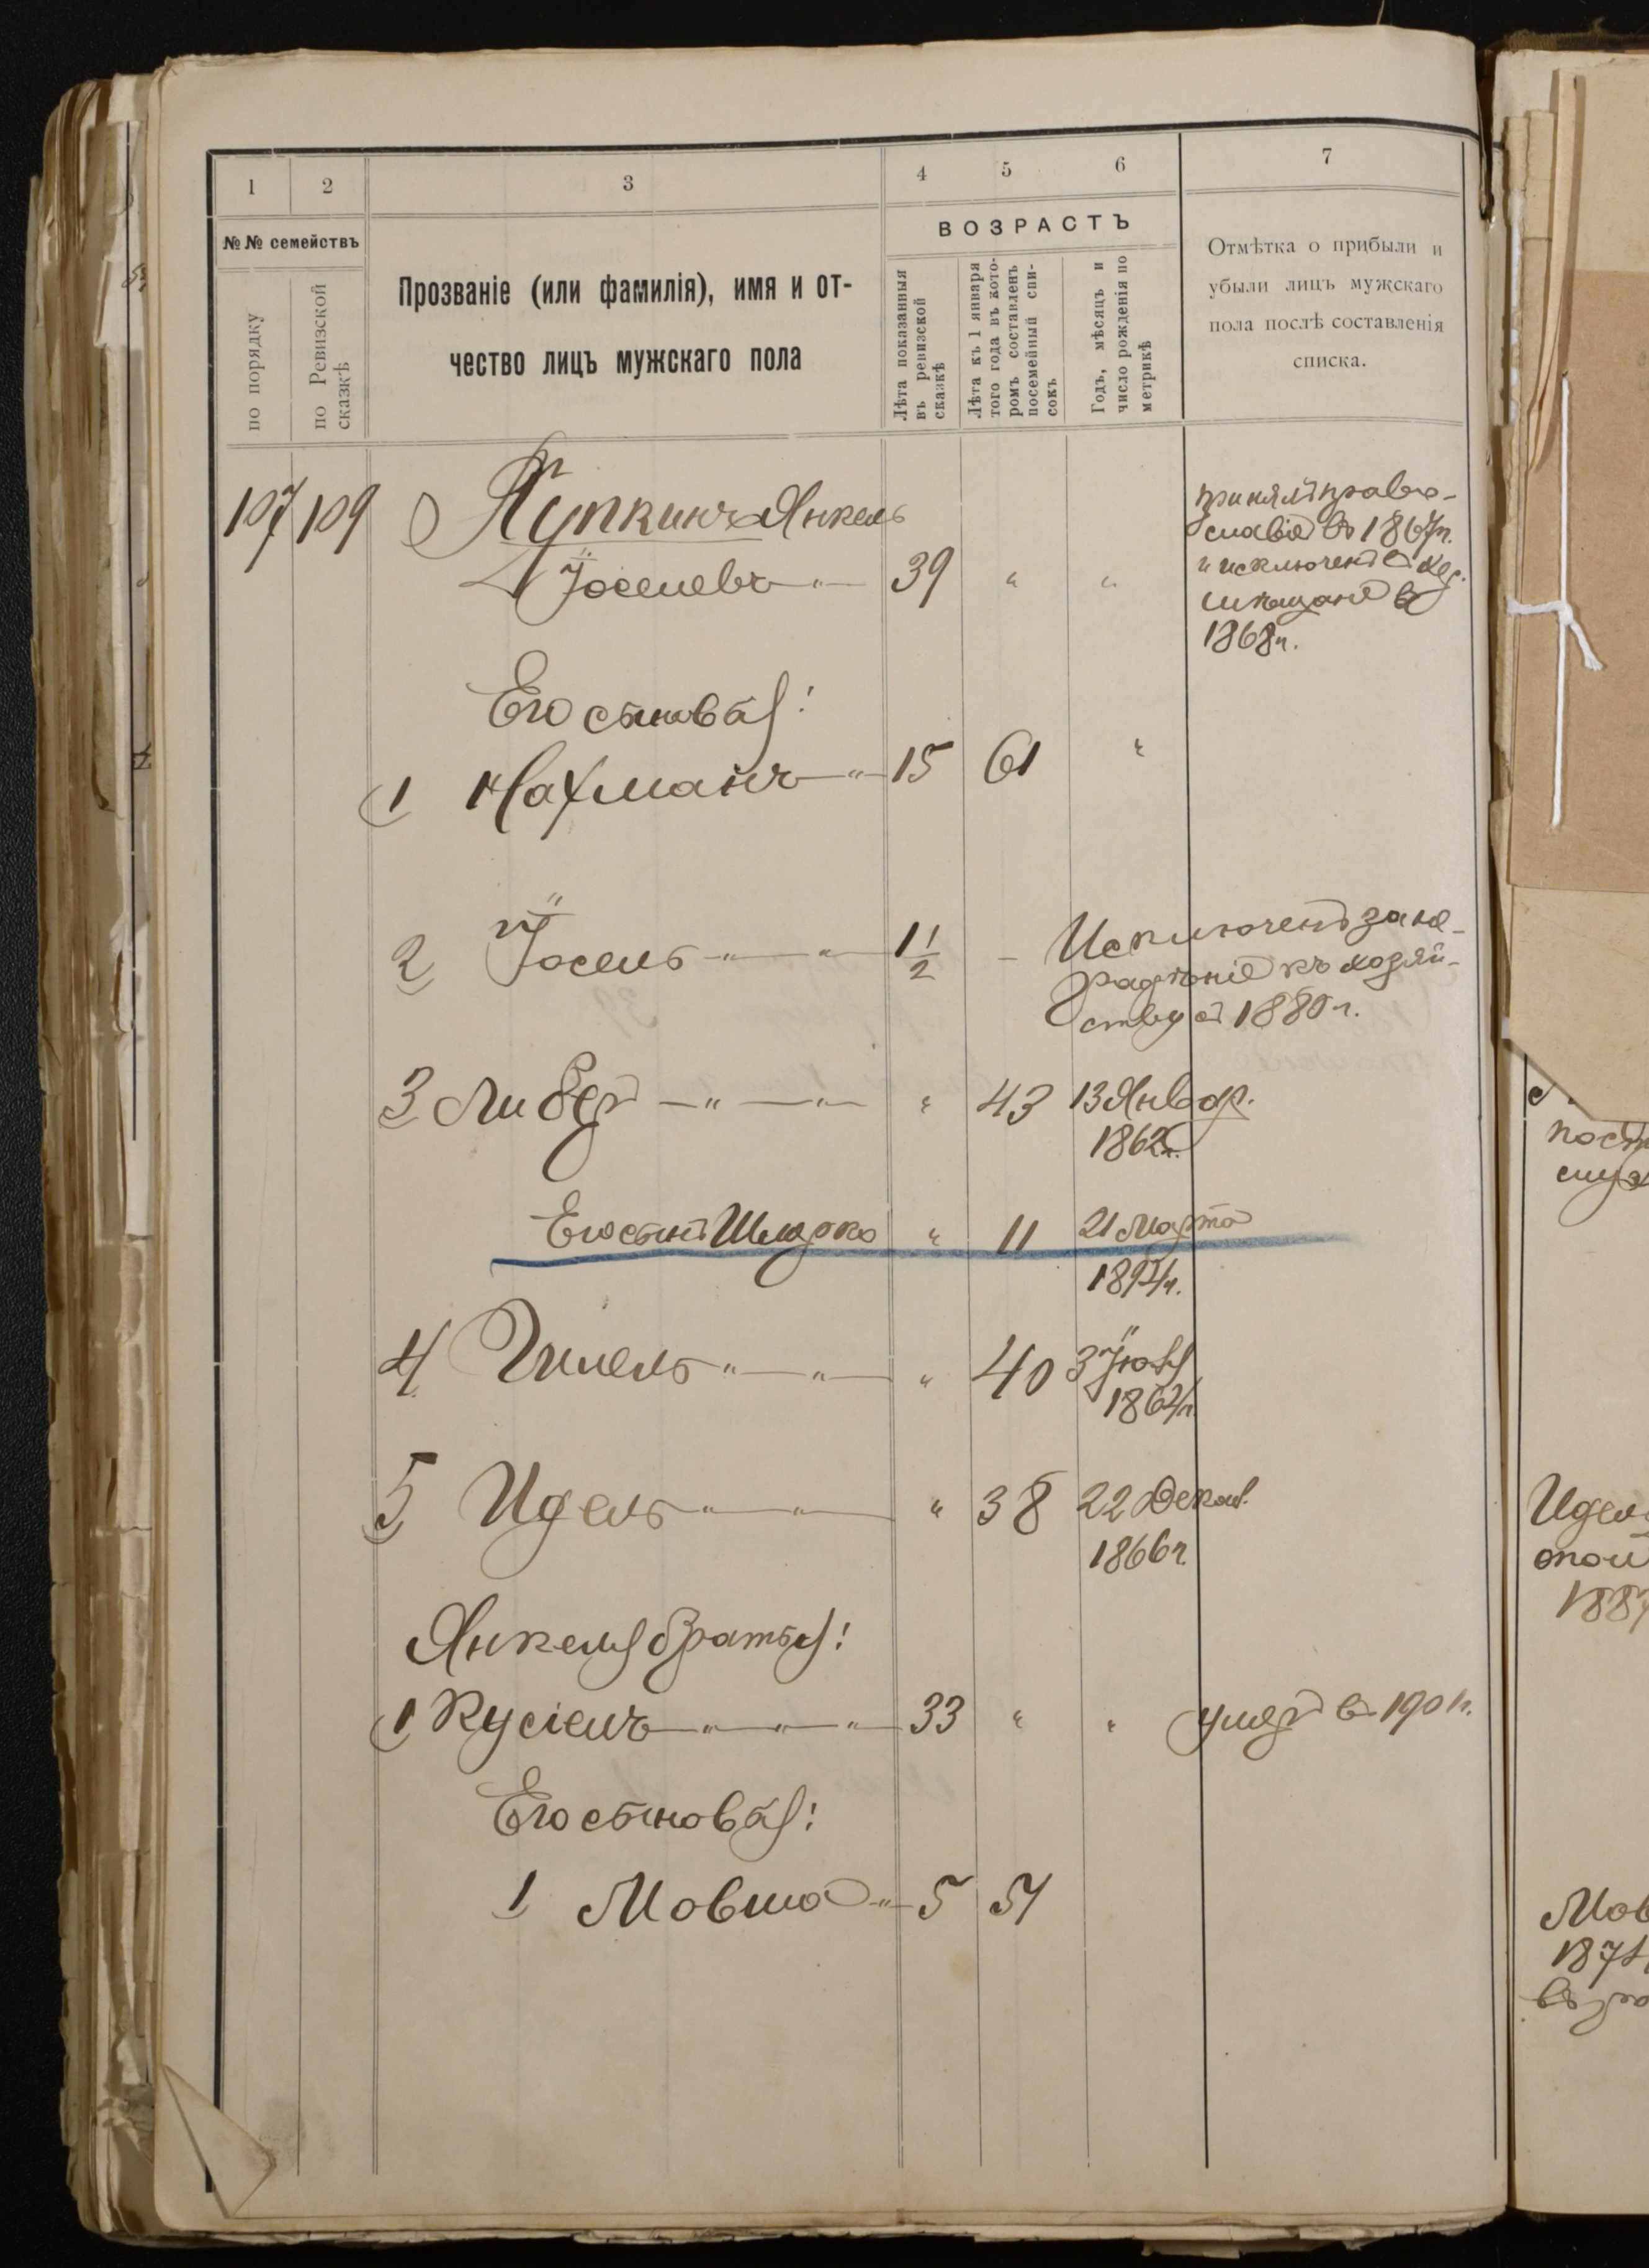 1
2
3
4
5
6
7
№№ семействъ
по порядку
по Ревизской
сказкѣ
Прозваніе (или фамилія), имя и от-
чество лицъ мужскаго пола
ВОЗРАСТЪ
Лѣта показанныя
въ ревизской
сказкѣ
Лѣта къ 1 января
того года въ кото-
ромъ составленъ
посемейный спи-
сокъ
Годъ, мѣсяцъ и
число рожденія по
метрикѣ
Отмѣтка о прибыли и
убыли лицъ мужскаго
пола послѣ составленія
списка.
107 109 Янкель
Іоселевъ 39 " "
принялъ право-
славіе въ 1867г.
и исключенъ
въ
1868г.
Его сыновья:
1 Нахманъ 15 61 "
2 Іосель 1 1/2 – Исключенъ за не-
радѣніе къ хозяй-
ству въ 1880 г.
3 Либеръ " 43 13 Январ.
1862г.
Его сынъ " 11 21 Марта
1894г.
4 Гилель " 40 3 Іюля
1864г.
5 Идель " 38 22 Декаб.
1866г.
Янкеля братья:
1 Кусіелъ 33 " " умеръ въ 1901г.
Его сыновья:
1 Мовша 5 51
Идел
1887
Мов
1874